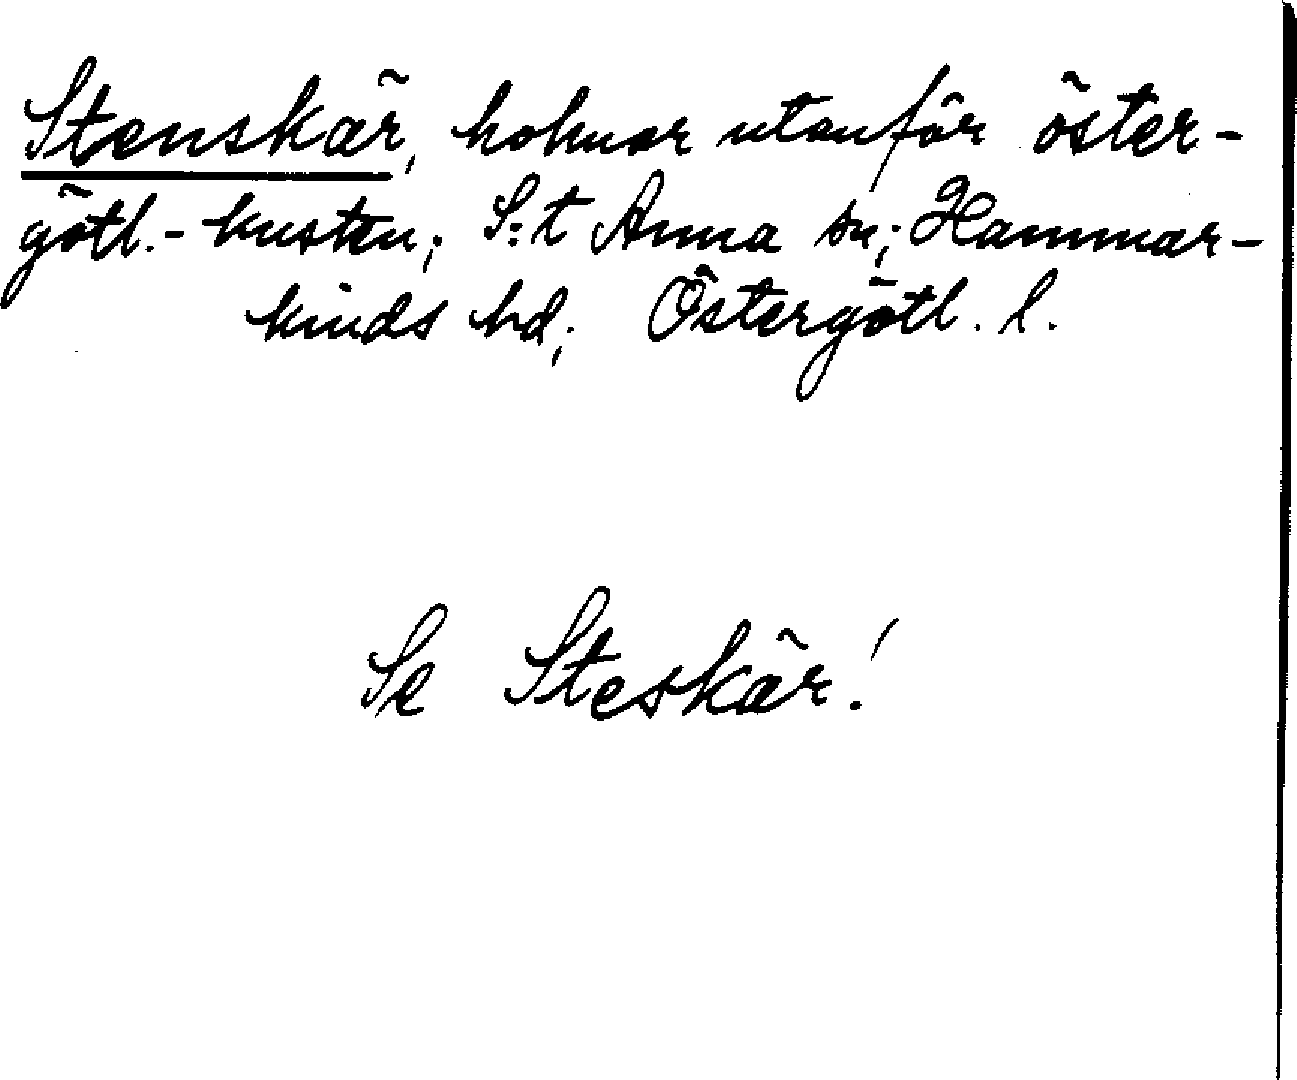 Stenskär, holmar utanför öster-
götl.-kusten; S:t Anna sn; Hammar-
kinds hd; Östergötl. l.
Se Steskär!